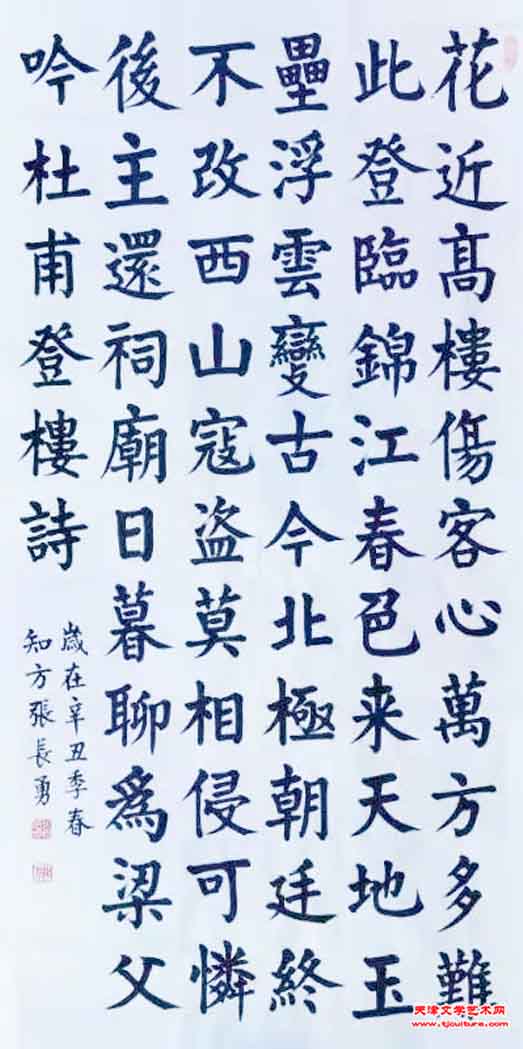 花近高樓傷客心萬方多難
此登臨錦江春色来天地玉
壘浮雲變古今北極朝廷終
不改西山寇盜莫相侵可憐
後主還祠廟日暮聊爲梁父
吟杜甫登樓詩
歲在辛丑季春
知方張長勇
天津文学艺术网
www.tjculture.com